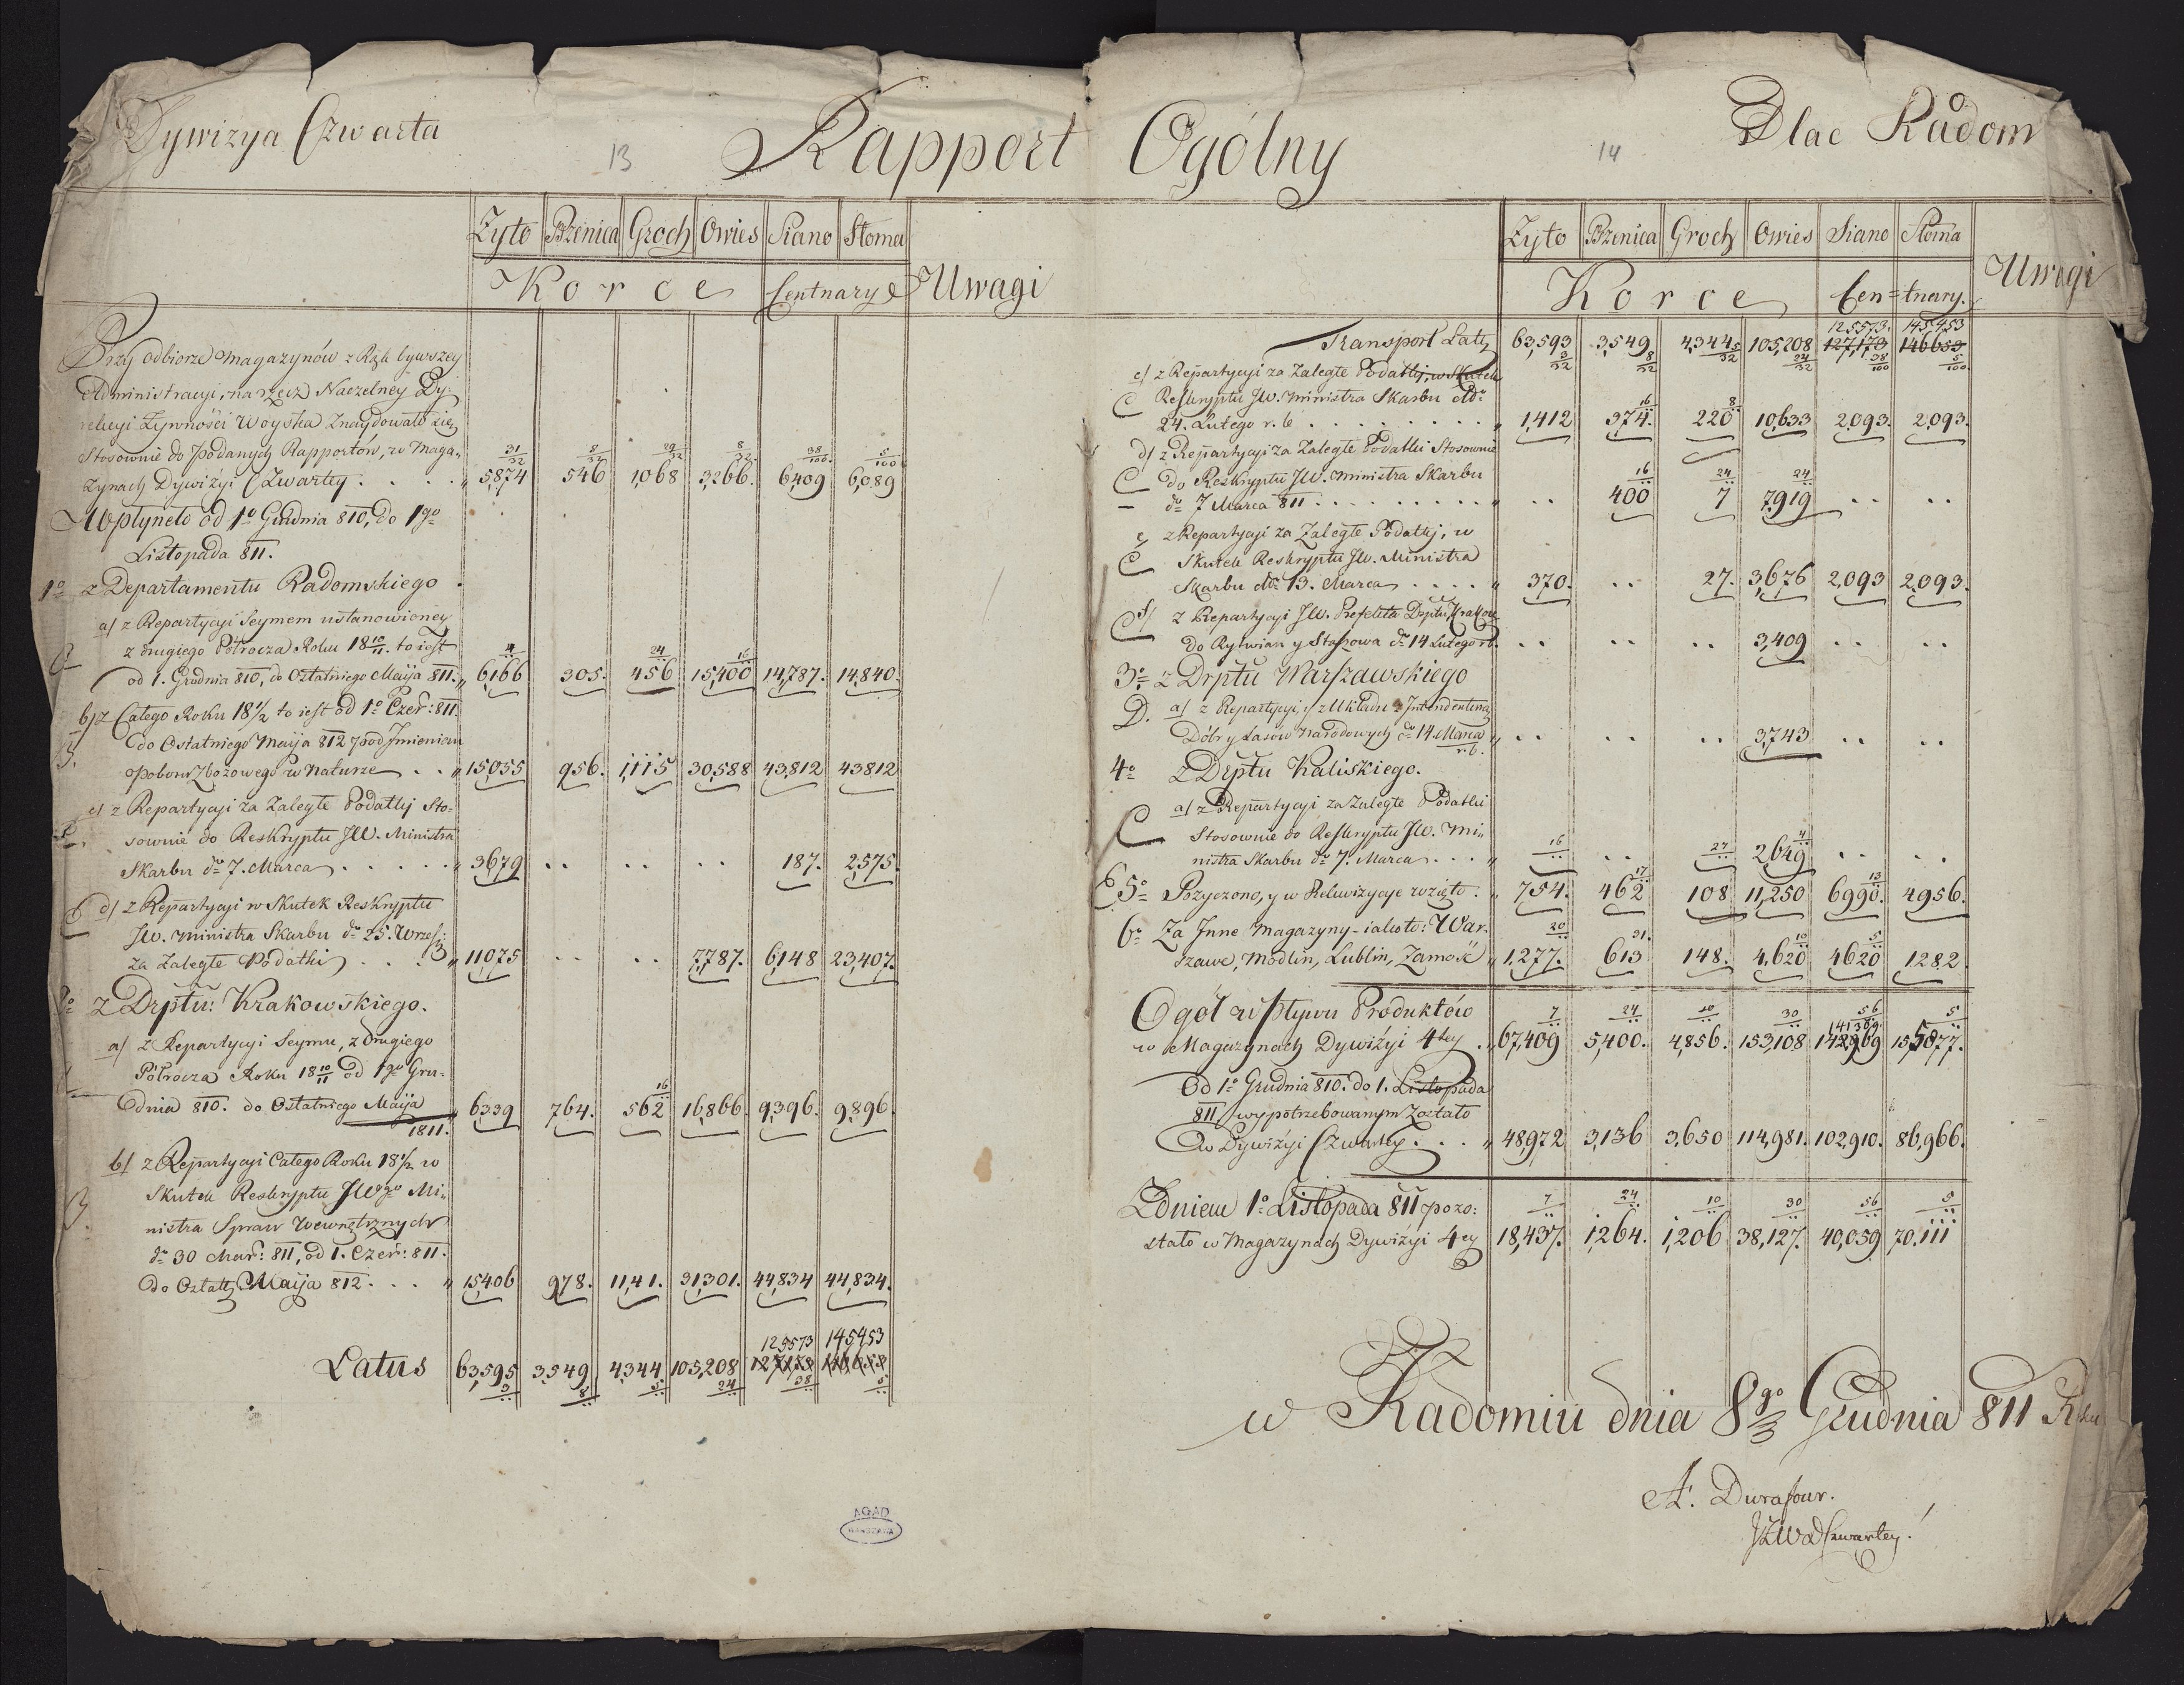 Dywizya Czwarta
13
Rapport Ogólny
14
Plac Radom
Żyto Pszenica Groch Owies Siano Słoma
Korce Centnary Uwagi
Przy odbiorze magazynów z Rąk bywszey
Administracyi, na rzecz Naczelney Dy-
rekcyi Żywności Woyska Znaydowało się
Stosownie do podanych Rapportów, w Maga-
zynach Dywizyi Czwartey . . . 5,874 31/32 546 8/32 1,068 29/32 3,266 8/32 6,409 38/100 6,089 5/100
Wpłyneło od 1o Grudnia 810, do 1go
Listopada 811.
1o z Departamentu Radomskiego
a/ z Repartycyi Seymem ustanowioney
z drugiego Półrocza Roku 18 10/11. to iest
od 1. Grudnia 810, do Ostatniego Maija 811. 6,166 4 305. 456 24 15,400 16 14,787. 14,840.
b/ z Całego Roku 18 11/12 to iest od 1o Czer: 811.
do Ostatniego Maija 812 pod Jmieniem
poboru zbożowego w naturze . . 15,055 956. 1,115 30,588 43,812 43812
c/ z Repartycyi za Zaległe Podatki Sto-
sownie do Reskryptu JW. Ministra
Skarbu do 7. Marca . . . . . 3,679 . . . . . . 187. 2,575.
C d/ z Repartycyi w Skutek Reskryptu
JW. Ministra Skarbu do 25. Wrześ:
za Zaległe Podatki . . . 11,075 . . . . 7,787. 6,148 23,407.
2o z Drptu: Krakowskiego.
a/ z Repartycyi Seymu, z drugiego
Półrocza Roku 18 10/11 od 1go Gru-
dnia 810. do Ostatniego Maija 6339 764. 562 16 16,866. 9,396. 9,896.
1811.
b/ z Repartycyi Całego Roku 18 11/12 w
B. Skutek Reskryptu JWgo Mi-
nistra Spraw Wewnętrznych
do 30 Mar: 811, od 1. Czer: 811.
do Ostatt. Maija 812. . . . 15,406 978. 11,41. 31,301. 44,834 44,834.
125573 145453
Latus 63,595 3,549 4344 105,208 127178 146653
3 8 5 24 38 5
Żyto Pszenica Groch Owies Siano Słoma
Korce Cen=tnary. Uwagi
125573. 145,453
Transport Laty 63,593 3,549 4,344 105,208 127,178 146653
3/32 8/32 5/32 24/32 38/100 5/100
c/ z Repartycyi za Zaległe Podatki, w Skutek
C Reskryptu JW. Ministra Skarbu do
24. Lutego r. b . . . . . . . . 1,412 374. 16 220 8 10,633 2,093. 2,093.
d/ z Repartycyi za Zaległe Podatki Stosownie
C do Reskryptu JW. Ministra Skarbu
do 7 Marca 811 . . . . . . . . . . 400 16 7 24 7,919 24 . . . .
e, z Repartycyi za Zaległe Podatki, w
C Skutek Reskryptu JW. Ministra
Skarbu do 13. Marca . . . . 370. . . 27. 3,676 2,093 2,093.
C f/ z Repartycyi JW. Prefekta Drptu Krakow
do Rytwian y Staszowa do 14 Lutego rb. . . . . . . 3,409 . . . .
3o z Drptu Warszawskiego
D. a/ z Repartycyi, z Układu z Intendentem
Dóbr y Lasów Narodowych do 14. Marca . . . . . . 3,743 . . . .
r. b.
4o z Drptu Kaliskiego.
a/ z Repartycyi za Zaległe Podatki
C Stosownie do Reskryptu JW. Mi-
nistra Skarbu do 7. Marca . . . 16 . . 27 2,649 4 . . . .
E 5o Pożyczono, y w Rekwizycye wzięto. 754. 462 17 108 11,250 6990. 13 4956.
6o Za Jnne Magazyny - iakoto: War-
szawę, Modlin, Lublin, Zamość 1,277. 20 613 31. 148. 4,620 10 4620 5 1282
Ogół wpływu Produktów 7 24 10 30 56 5
141369.
w Magazynach Dywizyi 4tey . 67,409 5,400. 4,856. 153,108 142,969 155077.
Od 1o Grudnia 810. do 1. Listopada
811 wypotrzebowanym Zostało
w Dywizyi Czwartey . . . 48,972 3,136 3,650 114,981. 102,910. 86,966.
Z dniem 1o Listopada 811 pozo: 7 24 10 30 56 5
stało w Magazynach Dywizyi 4tey 18,437. 1,264. 1,206 38,127. 40,059 70.111
w Radomiu dnia 8go Grudnia 811 Roku
A. Durafour.
JŻWD Czwartey.
AGAD
WARSZAWA